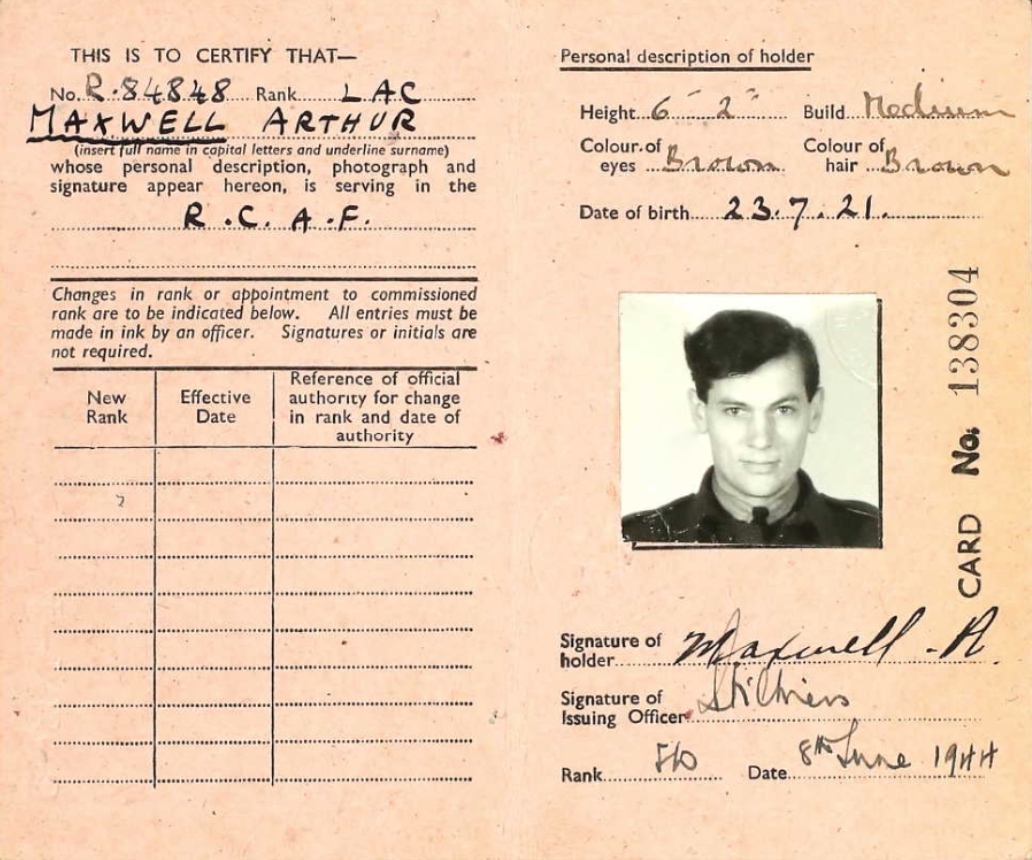 THIS IS TO CERTIFY THAT—
No. R.84848 Rank LAC
MAXWELL ARTHUR
(insert full name in capital letters and underline surname)
whose personal description, photograph and
signature appear hereon, is serving in the
R.C.A.F.
Changes in rank or appointment to commissioned
rank are to be indicated below. All entries must be
made in ink by an officer. Signatures or initials are
not required.
New Rank
Effective Date
Reference of official
authority for change
in rank and date of
authority
Personal description of holder
Height 6' 2" Build Medium
Colour of eyes Brown Colour of hair Brown
Date of birth 23.7.21.
CARD No. 138304
Signature of holder Maxwell - A.
Signature of
Issuing Officer
Rank Date 8th June 1944